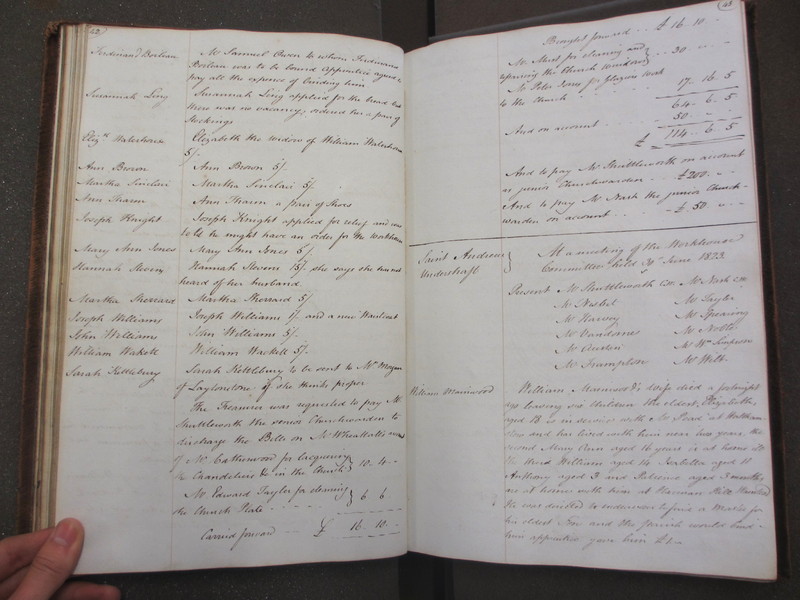 42
Ferdinand Borleau Mr Samuel Owen to whom Ferdinand
Borleau was to be bound Apprentice agreed to
pay all the expence of binding him
Susannah Ling Susannah Ling applied for the bread but
there was no vacancy; ordered her a pair of
Stockings
Elizth Waterhouse Elizabeth the widow of William Waterhouse
5/.
Ann Brown Ann Brown 5/.
Martha Sinclair Martha Sinclair 5/.
Ann Tharm Ann Tharm a pair of Shoes
Joseph Knight Joseph Knight applied for relief and was
told he might have an order for the workhouse
Mary Ann Jones Mary Ann Jones 5/.
Hannah Stevens Hannah Stevens 15/. she says she has not
heard of her husband.
Martha Sherrard Martha Sherrard 5/.
Joseph Williams Joseph Williams 1/. and a new Waistcoat
John Williams John Williams 5/.
William Wackell William Wackell 5/.
Sarah Kettlebury Sarah Kettlebury to be sent to Mr
of Laytonstone if she thinks proper
The Treasurer was requested to pay Mr
Shuttleworth the senior Churchwarden to
discharge the Bills on Mr
of Mr Catherwood for lacquering
the Chandeliers &c in the Church 10 . 4 .
Mr Edward Tayler for cleaning
the Church Plate 6 6
Carried forward £ 16. 10.
43
Brought forward £ 16. 10.
Mr Must for cleaning and
repairing the Church Windows 30
Mr Peter for Glaziers Work
to the Church 17. 16. 5
64. 6. 5
And on account 50
£ 114. 6. 5
And to pay Mr Shuttleworth on account
as junior Churchwarden £200
And to pay Mr Nash the junior Church-
warden on account £50
Saint Andrew At a meeting of the Workhouse
Undershaft Committee held 30th June 1823
Present Mr Shuttleworth CW Mr Nash CW
Mr Nesbit Mr Tayler
Mr Harvey Mr Spearing
Mr Vandome Mr Noble
Mr Austin Mr Wm Simpson
Mr Frampton Mr Wilt
William Mainwood William Mainwood's wife died a fortnight
ago leaving six children the eldest, Elizabeth,
aged 18 is in service with Mr at
and has lived with him near two years the
second Mary Ann aged 16 years is at home with
the third William aged 14 Isabella aged 11
Anthony aged 9 and aged 3 months
are at home with him at
the case directed to endeavour to find a Master for
his eldest Son and the Parish would bind
him apprentice gave him £1